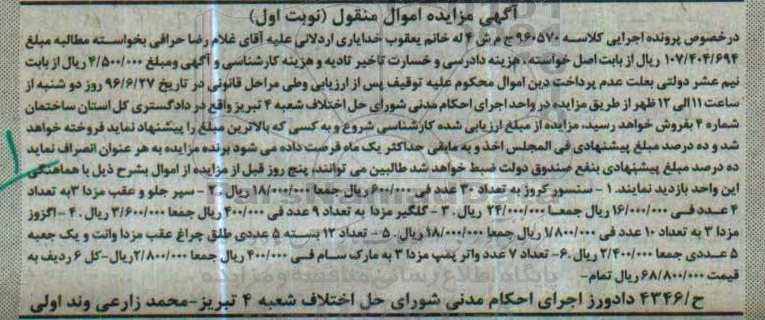 آگهی مزایده اموال منقول (نوبت اول)
درخصوص پرونده اجرایی کلاسه ۹۶۰۵۷۰ ج م ش ۴ له خانم یعقوب خدایاری اردلانی علیه آقای غلام رضا حرافی بخواسته مطالبه مبلغ
۱۰۷/۴۰۴/۶۹۴ ریال از بابت اصل خواسته، هزینه دادرسی و خسارت تاخیر تادیه و هزینه کارشناسی و آگهی ومبلغ ۴/۵۰۰/۰۰۰ ریال از بابت
نیم عشر دولتی بعلت عدم پرداخت دین اموال محکوم علیه توقیف پس از ارزیابی وطی مراحل قانونی در تاریخ ۹۶/۶/۲۷ روز دو شنبه از
ساعت ۱۱الی ۱۲ ظهر از طریق مزایده در واحد اجرای احکام مدنی شورای حل اختلاف شعبه ۴ تبریز واقع در دادگستری کل استان ساختمان
شماره ۴ بفروش خواهد رسید، مزایده از مبلغ ارزیابی شده کارشناسی شروع و به کسی که بالاترین مبلغ را پیشنهاد نماید فروخته خواهد
شد و ده درصد مبلغ پیشنهادی فی المجلس اخذ و به مابقی حداکثر یک ماه فرصت داده می شود برنده مزایده به هر عنوان انصراف نماید
ده درصد مبلغ پیشنهادی بنفع صندوق دولت ضبط خواهد شد طالبین می توانند، پنج روز قبل از مزایده از اموال بشرح ذیل با هماهنگی
این واحد بازدید نمایند. ۱ - سنسور کروز به تعداد ۳۰ عدد فی ۶۰۰/۰۰۰ ریال جمعا ۱۸/۰۰۰/۰۰۰ ریال. ۲ - سپر جلو و عقب مزدا ۳به تعداد
۴ عدد فی ۱۶/۰۰۰/۰۰۰ ریال جمعا ۲۴/۰۰۰/۰۰۰ ریال. ۳ - گلگیر مزدا به تعداد ۹ عدد فی ۴۰۰/۰۰۰ ریال جمعا ۳/۶۰۰/۰۰۰ ریال. ۴ - اگزوز
مزدا ۳ به تعداد ۱۰ عدد فی ۱/۸۰۰/۰۰۰ ریال جمعا ۱۸/۰۰۰/۰۰۰ ریال. ۵- تعداد ۱۲ بسته ۵ عددی طلق چراغ عقب مزدا وانت و یک جعبه
۵ عددی جمعا ۲/۴۰۰/۰۰۰ ریال. ۶- تعداد ۷ عدد واتر پمپ مزدا ۳ به مارک سام فی ۴۰۰/۰۰۰ ریال جمعا ۲/۸۰۰/۰۰۰ریال-کل ۶ ردیف به
قیمت ۶۸/۸۰۰/۰۰۰ ریال تمام-
ح/۴۳۴۶ دادورز اجرای احکام مدنی شورای حل اختلاف شعبه ۴ تبریز-محمد زارعی وند اولی